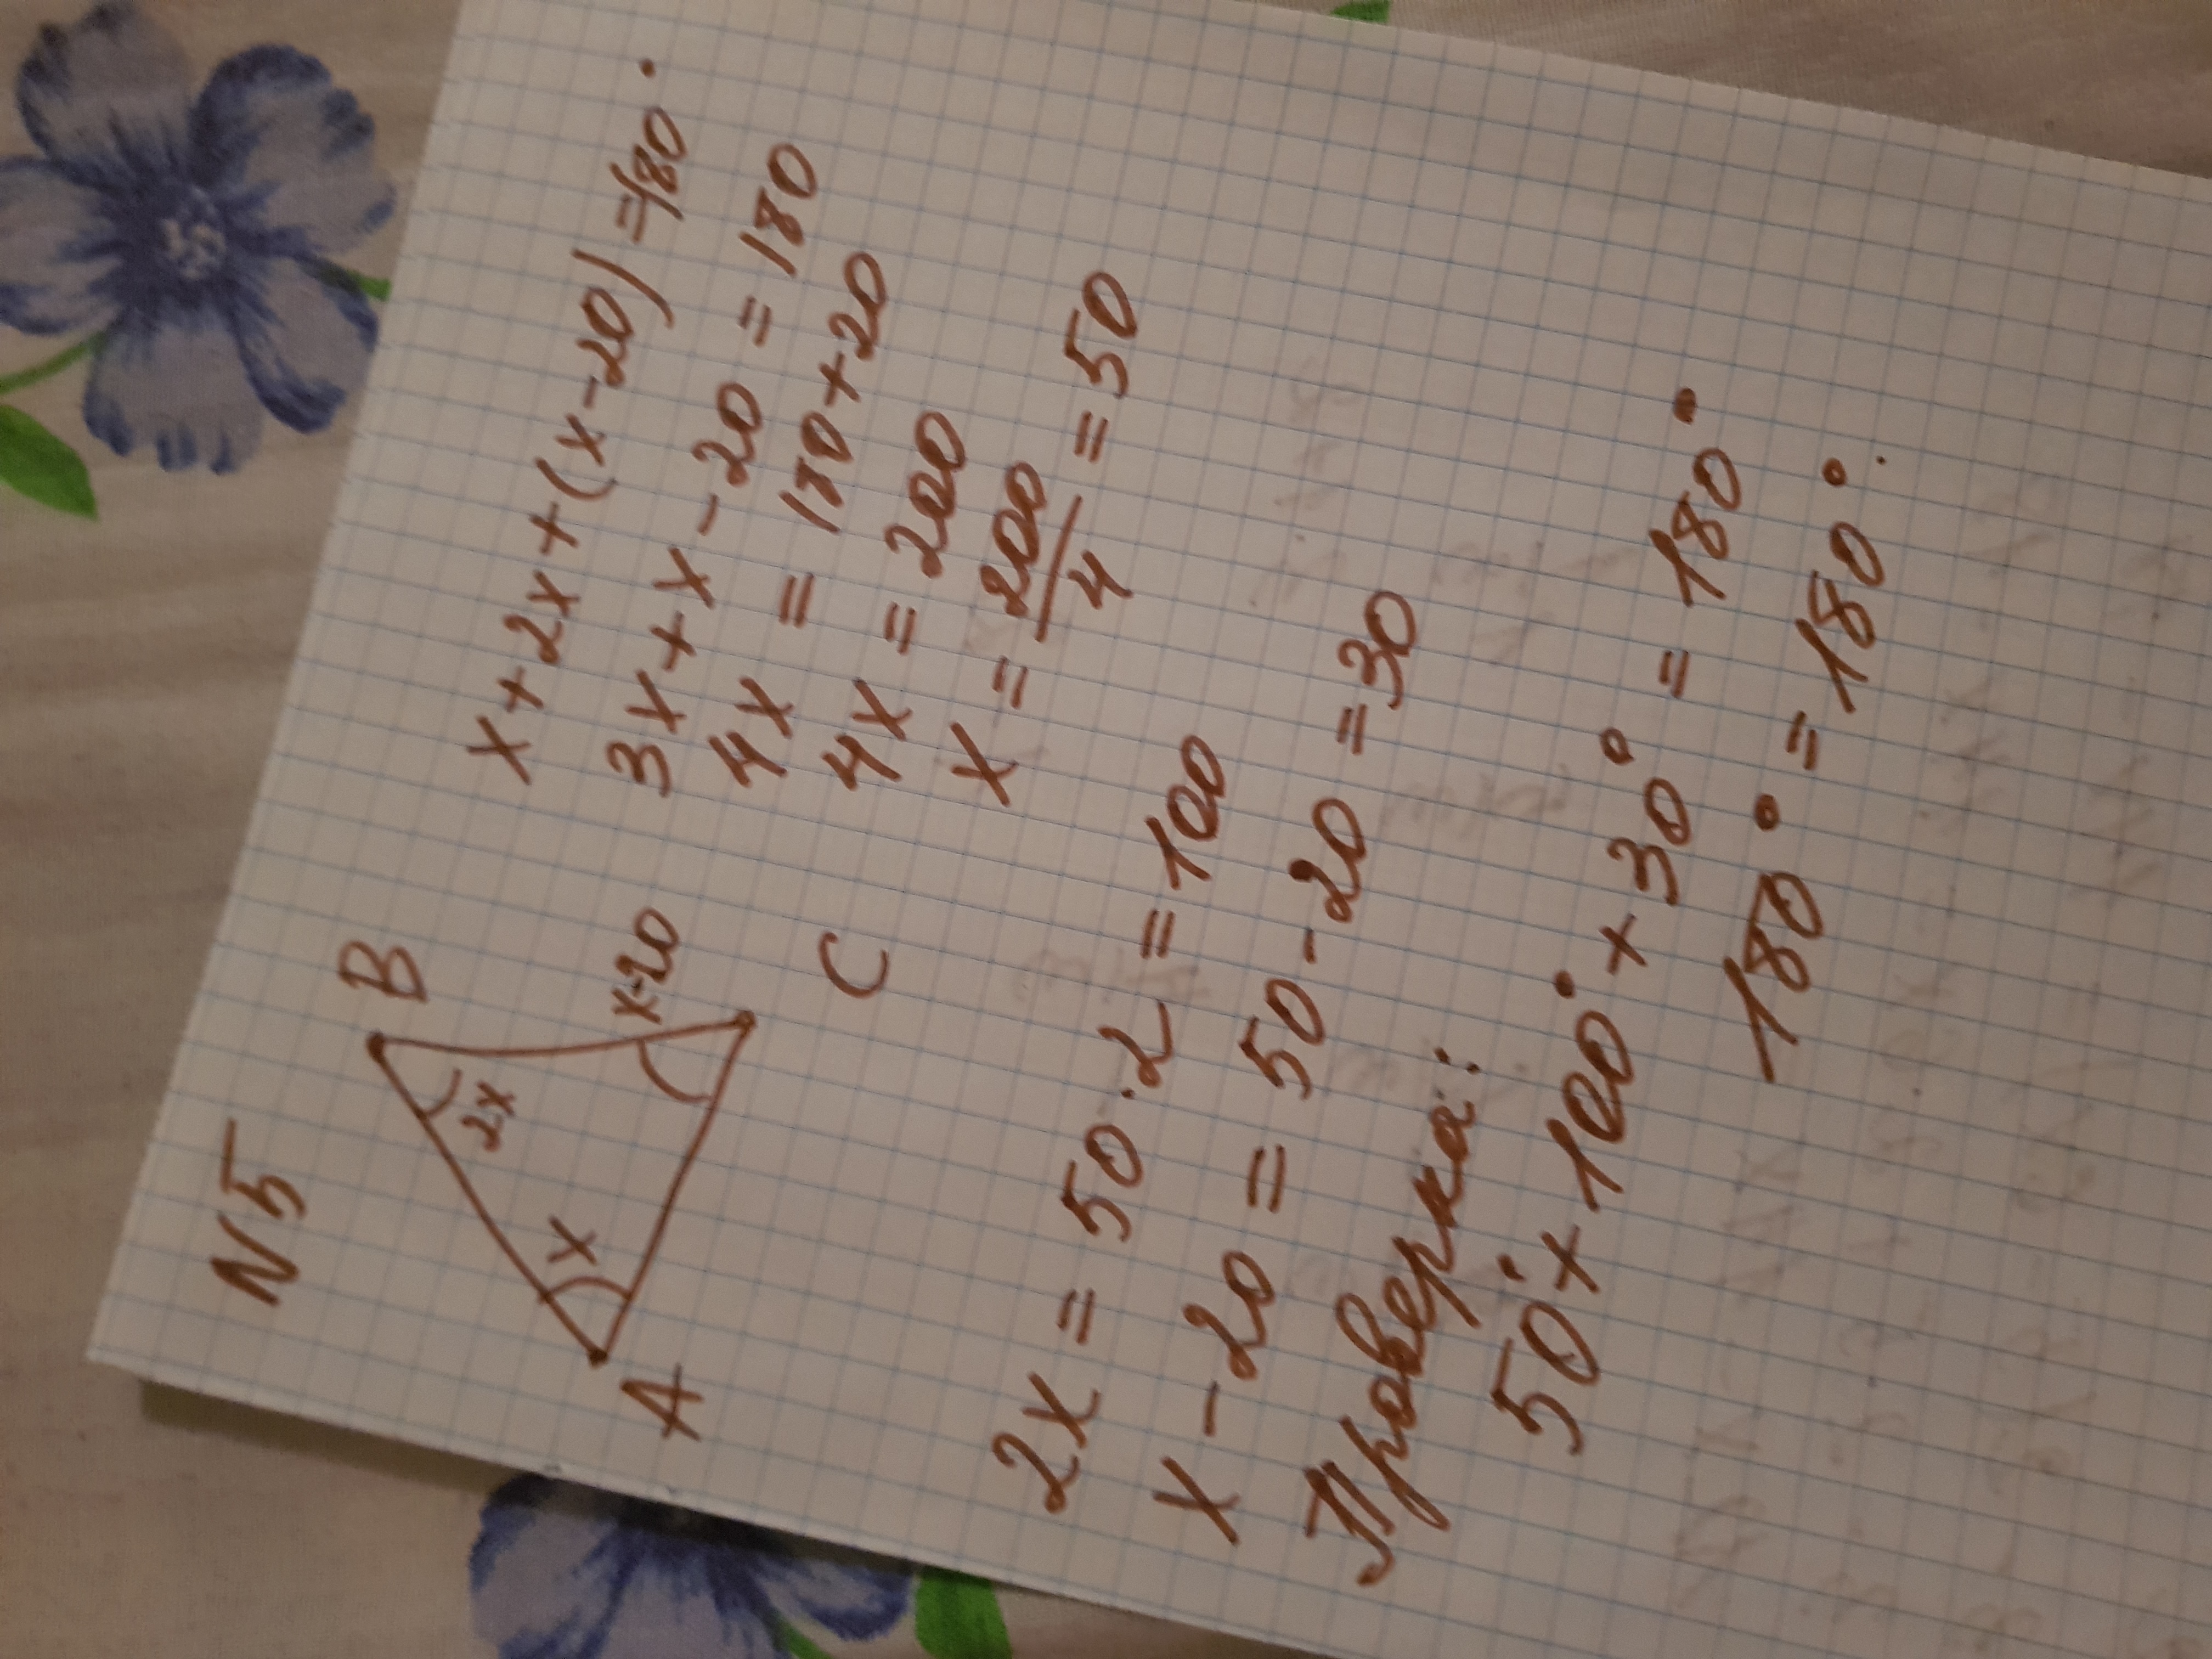 N5
B
2x
x
x-20
A
C
x+2x+(x-20)=180°
3x+x-20=180
4x=180+20
4x=200
x=200/4=50
2x=50·2=100
x-20=50-20=30
Проверка:
50°+100°+30°=180°
180°=180°.